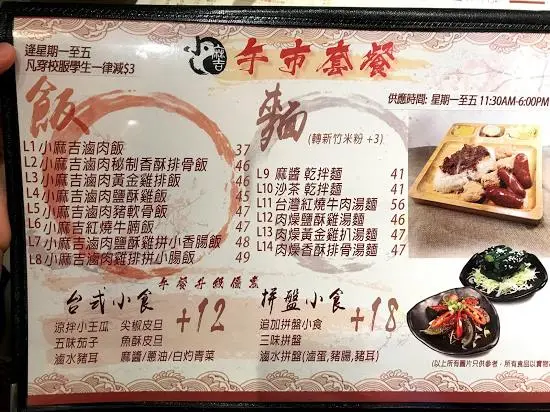 逢星期一至五
凡穿校服學生一律減$3
麻吉
午市套餐
供應時間: 星期一至五 11:30AM-6:00PM
飯
L1 小麻吉滷肉飯 37
L2 小麻吉滷肉秘制香酥排骨飯 46
L3 小麻吉滷肉黃金雞排飯 46
L4 小麻吉滷肉鹽酥雞飯 45
L5 小麻吉滷肉豬軟骨飯 47
L6 小麻吉紅燒牛腩飯 47
L7 小麻吉滷肉鹽酥雞拼小香腸飯 48
L8 小麻吉滷肉雞排拼小腸飯 49
麵
(轉新竹米粉 +3)
L9 麻醬 乾拌麵 41
L10 沙茶 乾拌麵 41
L11 台灣紅燒牛肉湯麵 56
L12 肉燥鹽酥雞湯麵 46
L13 肉燥黃金雞扒湯麵 47
L14 肉燥香酥排骨湯麵 47
午餐升級優惠
台式小食 +12
涼拌小王瓜 尖椒皮旦
五味茄子 魚酥皮旦
滷水豬耳 麻醬/蔥油/白灼青菜
拼盤小食 +18
追加拼盤小食
三味拼盤
滷水拼盤(滷蛋,豬腸,豬耳)
(以上所有圖片只供參考，所有食品以實物